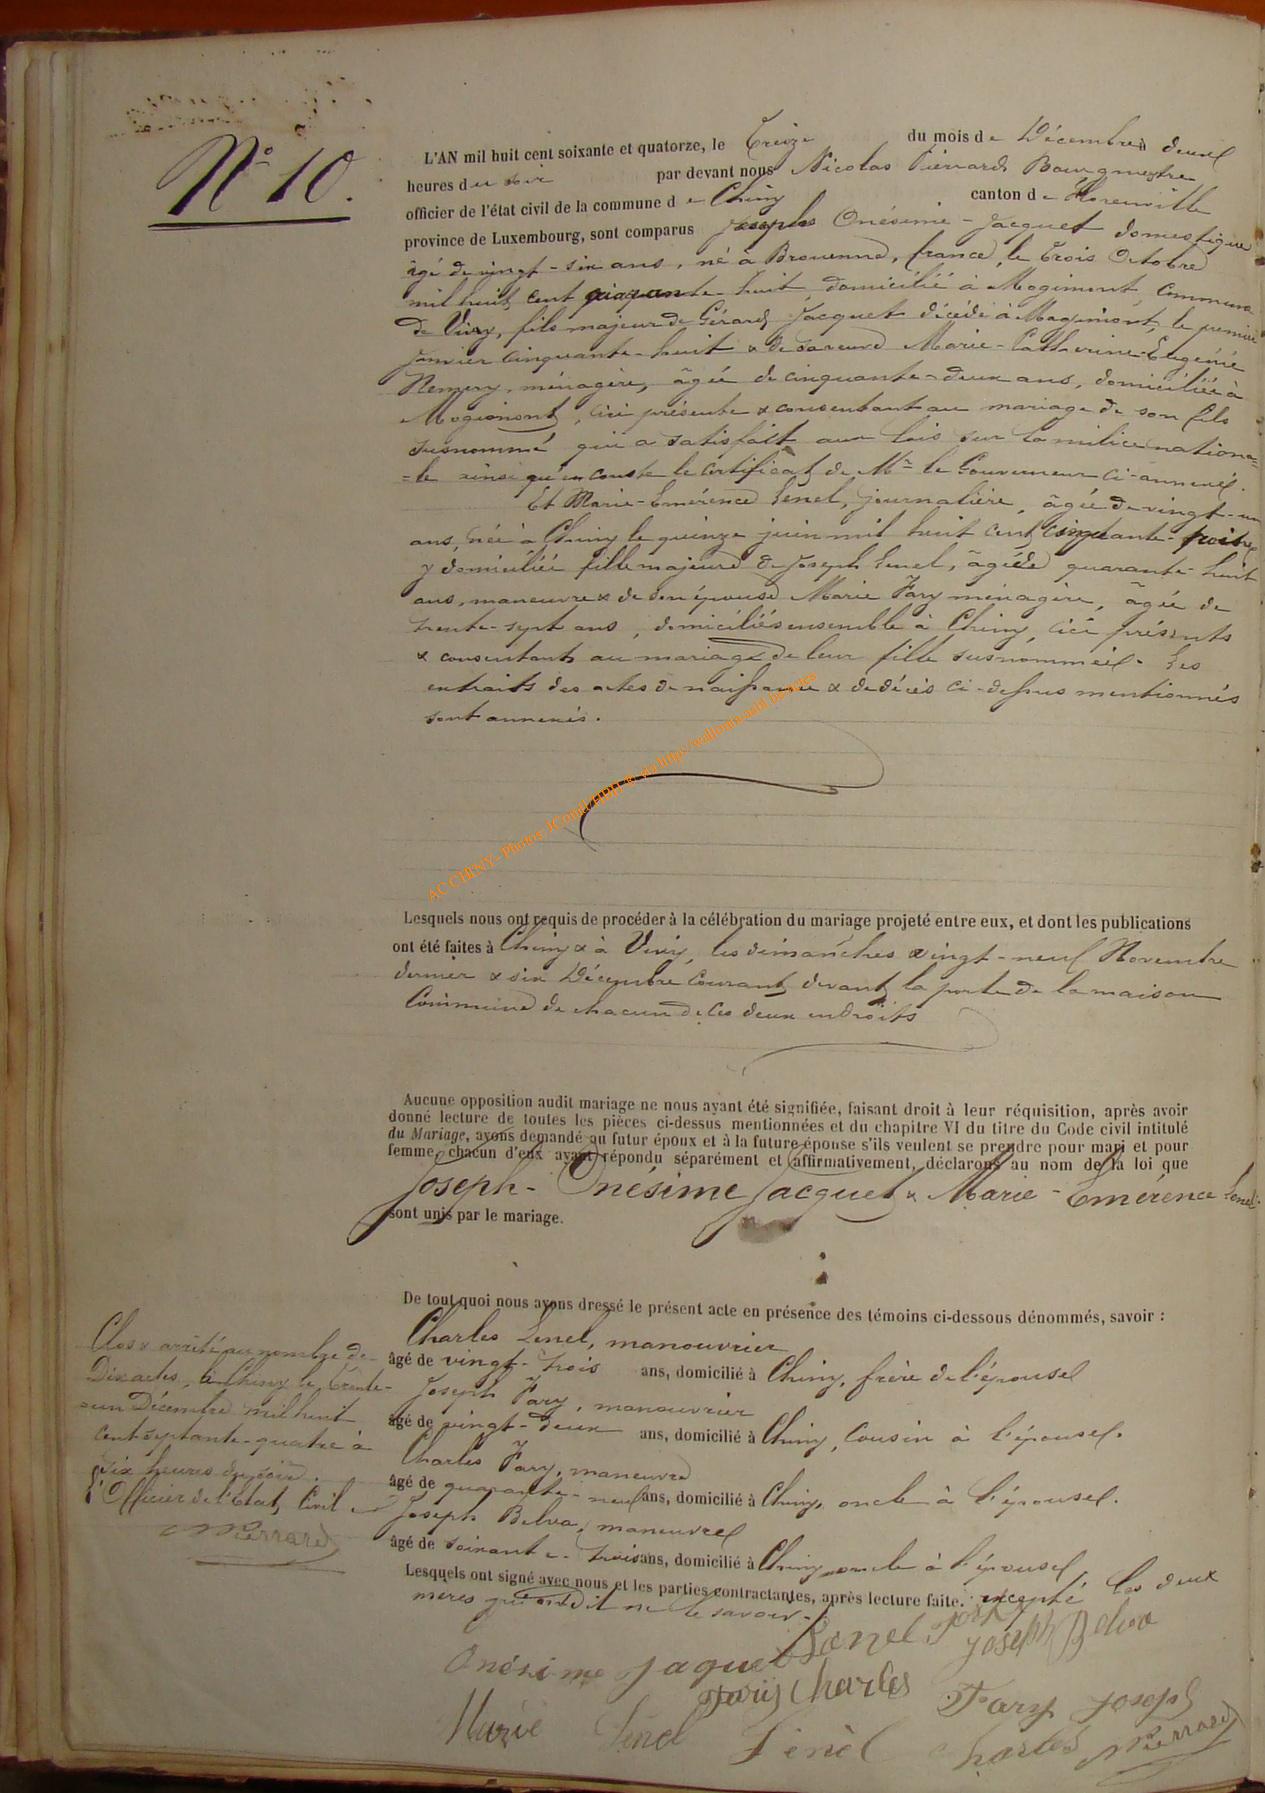 N° 10.
L'AN mil huit cent soixante et quatorze, le Treize du mois de Décembre à deux
heures du soir par devant nous Nicolas Pierrard Bourgmestre
officier de l'état civil de la commune de Chiny canton de Florenville
province de Luxembourg, sont comparus Joseph Onésime Jacquet domestique
âgé de vingt-six ans, né à Brouenne, france, le trois Octobre
mil huit cent quarante-huit domicilié à Mogimont, commune
de Vivy, fils majeur de Gérard Jacquet décédé à Mogimont, le premier
Janvier cinquante-huit & de sa veuve Marie-Catherine-Eugénie
Nemery, ménagère, âgée de cinquante-deux ans, domiciliée à
Mogimont, ici présente & consentant au mariage de son fils
susnommé qui a satisfait aux lois sur la milice nationa=
=le ainsi qu'en conste le certificat de Mr le Gouverneur ci-annexé.
Et Marie-Emérence Lenel, journalière, âgée de vingt-un
ans, née à Chiny le quinze juin mil huit cent cinquante-trois
y domiciliée fille majeure de Joseph Lenel, âgé de quarante-huit
ans, maneuvre & de son épouse Marie Fary ménagère, âgée de
trente-sept ans, domiciliés ensemble à Chiny, ici présents
& consentants au mariage de leur fille susnommée. Les
extraits des actes de naissance & de décès ci-dessus mentionnés
sont annexés.
Lesquels nous ont requis de procéder à la célébration du mariage projeté entre eux, et dont les publications
ont été faites à Chiny & à Vivy, les dimanches vingt-neuf Novembre
dernier & six Décembre courant, devant la porte de la maison
Commune de chacun de ces deux endroits
Aucune opposition audit mariage ne nous ayant été signifiée, faisant droit à leur réquisition, après avoir
donné lecture de toutes les pièces ci-dessus mentionnées et du chapitre VI du titre du Code civil intitulé
du Mariage, avons demandé au futur époux et à la future épouse s'ils veulent se prendre pour mari et pour
femme, chacun d'eux ayant répondu séparément et affirmativement, déclarons au nom de la loi que
Joseph-Onésime Jacquet & Marie-Emérence Lenel
sont unis par le mariage.
De tout quoi nous avons dressé le présent acte en présence des témoins ci-dessous dénommés, savoir :
Charles Lenel, manouvrier
âgé de vingt-trois ans, domicilié à Chiny, frère de l'épouse
Joseph Fary, manouvrier
âgé de vingt-deux ans, domicilié à Chiny, cousin à l'épouse.
Charles Fary, maneuvre
âgé de quarante-neuf ans, domicilié à Chiny, oncle à l'épouse.
Joseph Belva, maneuvre
âgé de soixante-trois ans, domicilié à Chiny oncle à l'épouse
Lesquels ont signé avec nous et les parties contractantes, après lecture faite. excepté les deux
mères qui ont dit ne le savoir.
Clos & arrêté au nombre de
Dix actes, à Chiny le trente-
=un Décembre mil huit
cent septante-quatre à
six heures du soir.
l'Officier de l'Etat Civil
NPierrard
Lenel Joseph
Joseph Belva
Onésime Jaquet
Fary Charles
Fary Joseph
Marie Lenel
Lenel Charles
NPierrard